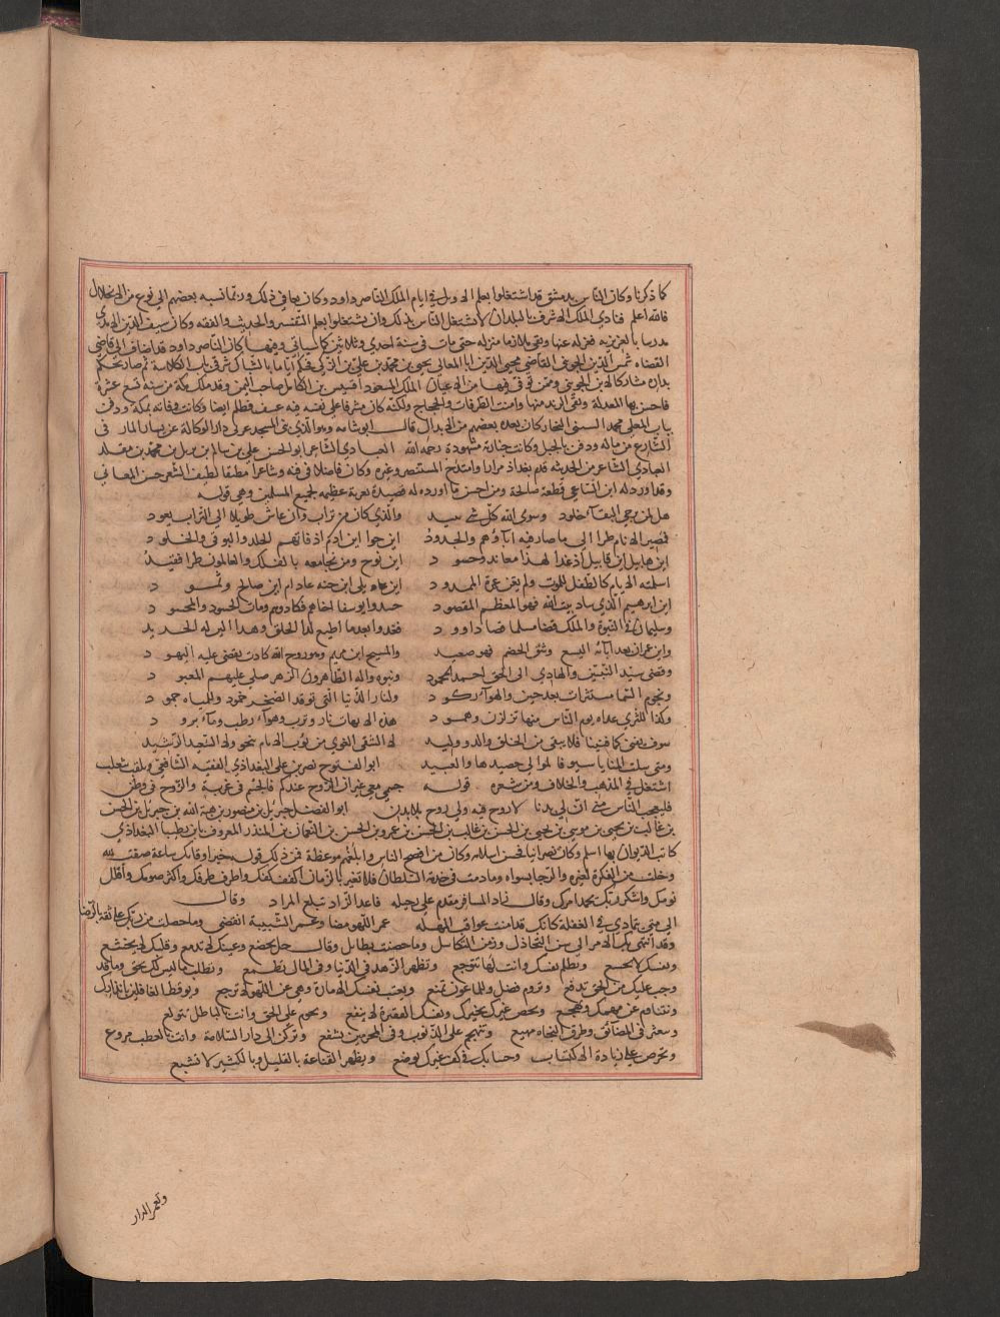 كما ذكرنا وكان الناس بدمشق قد اشتغلوا بعلم الاوائل في ايام الملك الناصر داود وكان يعاني ذلك وربما نسبه بعضهم الي نوع من الانحلال
فالله اعلم فنادي الملك الاشرف بالبلدان لا يشتغل الناس بذلك وان يشتغلوا بعلم التفسير والحديث والفقه وكان سيف الدين الامدي
مدرسا بالعزيزية فعزله عنها وبقي ملازما منزله حتي مات في سنة احدي وثلاثين كما سياتي وفيها كان الناصر داود قد اضاف الي قاضي
القضاه شمس الدين الخوئي القاضي محيي الدين ابا المعالي يحيي بن محمد بن علي بن الزكي فحكم اياما بالشباك شرقي باب الكلاسه ثم صار يحكم
بداره مشاركا لابن الخوئي وممن توفي فيها من الاعيان الملك المسعود اقسيس بن الكامل صاحب اليمن وقد ملك مكة من سنة تسع عشرة
فاحسن بها المعدلة ونفي الزيدية منها وامنت الطرقات والحجاج ولكنه كان مسرفا علي نفسه فيه عسف وظلم ايضا وكانت وفاته بمكة ودفن
بباب المعلي محمد السبتي النجار وكان يعده بعضهم من الابدال قال ابو شامه وهو الذي بني المسجد غربي دار الوكالة عن يسار المار في
الشارع من ماله ودفن بالجبل وكانت جنازته مشهودة رحمه الله العبادي الشاعر ابو الحسن علي بن سالم بن محمد بن مقلد
العبادي الشاعر من الحديثه قدم بغداد مرارا وامتدح المستنصر وغيره وكان فاضلا في فنه وشاعرا مطبقا لطيف الشعر حسن المعاني
وقد اورد له ابن الساعي قطعة صالحة ومن احسن ما اورده له قصيدة تعزية عظيمه لجميع المسلمين وهي قوله
هل لمن يرجي البقآ خلود وسوي الله كل شي يبيد والذي كان من تراب وان عاش طويلا الي التراب يعود
فمصير الانام طرا الي ما صار فيه اباؤهم والجدود اين حوا اين ادم اذ فاتهم الخلد والبوقي والخلود
اين هابيل اين قابيل اذ غدا لهذا معاند وحسود اين نوح ومن نجا معه بالفلك والعالمون طرا فقيد
اسلمته الايام كالطفل للموت ولم يغن عمره الممدود اين عاد بلى اين جنة عاد ام اين صالح وثمود
اين ابراهيم الذي شاد بيت الله فهو المعظم المقصود حسدوا يوسفا اخاهم فكادوه ومات الحسود والمحسود
وسليمان في النبوة والملك قضا مثلما قضا داوود فغدوا بعدما اطيع لذا الخلق وهذا الين له الحديد
وابن عمران بعد اياته التسع وشق الخضم فهو صعيد والمسيح ابن مريم وهو روح الله كادت تقضي عليه اليهود
وقضي سيد النبيين والهادي الي الحق احمد المحمود وبنوه واله الطاهرون الزهر صلي عليهم المعبود
ونجوم السما منتثرات بعد حين وللهوآء ركود ولنار الدنيا التي توقد الصخر خمود وللمياه جمود
وكذا للثري غداه يوم الناس منها تزلزل وهمود هذه الامهات نار وترب وهوآء رطب ومآء برود
سوف يفني كما فنينا فلا يبقي من الخلق والد ووليد لا الشقي الغوي من نوب الايام ينجو ولا السعيد الرشيد
ومتي سلت المنايا سيوفا فالموالي حصيدها والعبيد ابو الفتوح نصر بن علي البغدادي الفقيه الشافعي ويلقب بثعلب
اشتغل في المذهب والخلاف ومن شعره قوله جسمي معي غير ان الروح عندكم فالجسم في غربة والروح في وطن
فليعجب الناس مني ان لي بدنا لا روح فيه ولي روح بلا بدن ابو الفضل جبريل بن منصور بن هبة الله بن جبريل بن الحسن
بن غالب بن يحيي بن موسي بن يحيي بن الحسن بن غالب بن الحسن بن عمرو بن الحسن بن النعمان بن المنذر المعروف بابن بطينا البغدادي
كاتب الديوان بها اسلم وكان نصرانيا فحسن اسلامه وكان من افصح الناس وابلغهم موعظة فمن ذلك قوله خير اوقاتك ساعة صفت لله
وخلت من الفكرة لغيره والرجا بسواه وما دمت في خدمة السلطان فلا تغتر بالزمان اكفف كفك واصرف طرفك واكثر صومك واقلل
نومك واشكر ربك يحمد امرك وقال زاد المسافر مقدم علي رحيله فاعد الزاد تبلغ المراد وقال
الي متي تتمادي في الغفلة كانك قد امنت عواقب المهله عمر اللهو مضا وعمر الشبيبة انقضي وما حصلت من ربك علي ثقة بالرضا
وقد انتهي بك الامر الي سن التخاذل وزمن التكاسل وما حصلت بطايل وقال حل تخضع وعينك لا تدمع وقلبك لا يخشع
ونفسك لا تشبع وتظلم نفسك وانت لها تتوجع وتظهر الزهد في الدنيا وفي المال تطمع وتطلب ما ليس لك بحق وما قد
وجب عليك من الحق تدفع وتروم فضل ربك والماعون تمنع وتعيب نفسك الامارة وهي عن اللهو لا ترجع وتوقظ الغافلين بانذارك
وتتناوم عن سهمك وتهجع وتخص غيرك بخيرك ونفسك الفقيرة لا ينفع وتحوم علي الحق وانت بالباطل تتولع
وتتعثر في المضائق وطرق النجاه مهيع وتتهجم علي الذنوب وفي المجرمين تشفع وتركن الي دار السلامة وانت بالعطب مروع
وتحرص علي زيادة الاكتساب وحسابك في كف غيرك يوضع وتظهر القناعة بالقليل وبالكثير لا تشبع
وتعمر الدار